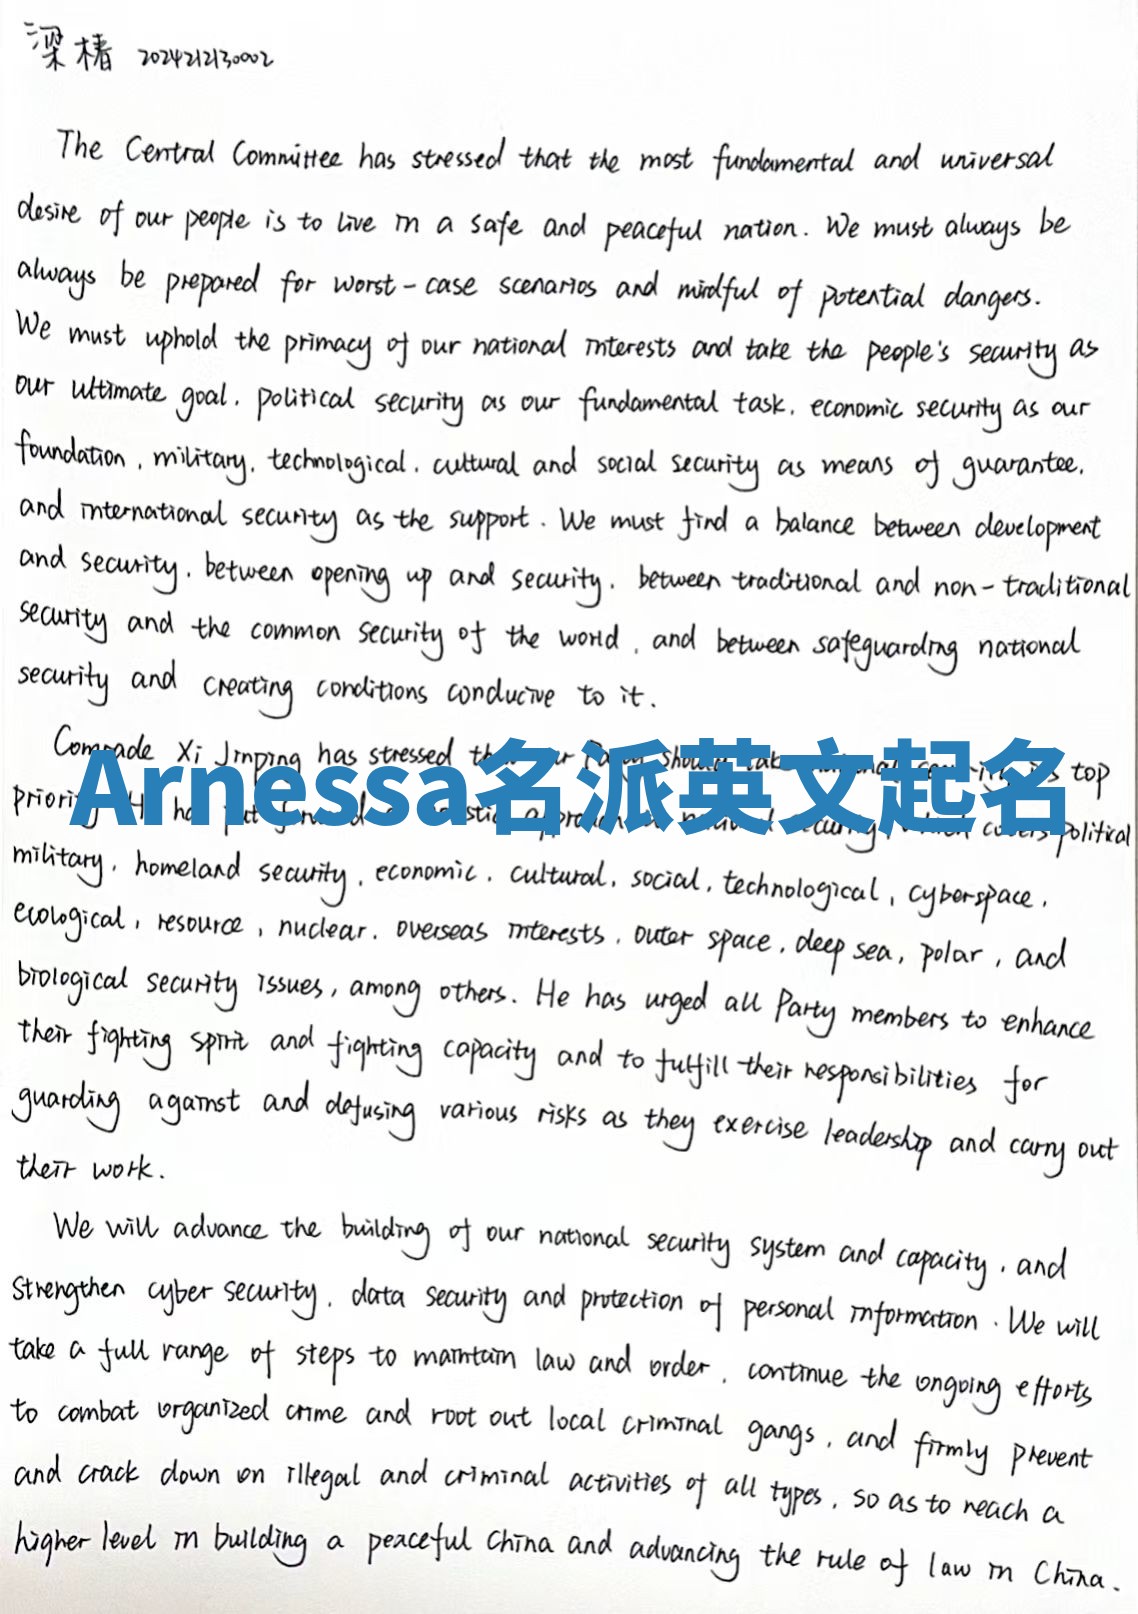 梁椿 2024212130002
The Central Committee has stressed that the most fundamental and universal
desire of our people is to live in a safe and peaceful nation. We must always be
always be prepared for worst-case scenarios and mindful of potential dangers.
We must uphold the primacy of our national interests and take the people's security as
our ultimate goal, political security as our fundamental task, economic security as our
foundation, military, technological, cultural and social security as means of guarantee,
and international security as the support. We must find a balance between development
and security, between opening up and security, between traditional and non-traditional
security and the common security of the world, and between safeguarding national
security and creating conditions conducive to it.
Comrade Xi Jinping has stressed top
Arnessa名派英文起名
political
military, homeland security, economic, cultural, social, technological, cyberspace,
ecological, resource, nuclear, overseas interests, outer space, deep sea, polar, and
biological security issues, among others. He has urged all Party members to enhance
their fighting spirit and fighting capacity and to fulfill their responsibilities for
guarding against and defusing various risks as they exercise leadership and carry out
their work.
We will advance the building of our national security system and capacity, and
strengthen cyber security, data security and protection of personal information. We will
take a full range of steps to maintain law and order, continue the ongoing efforts
to combat organized crime and root out local criminal gangs, and firmly prevent
and crack down on illegal and criminal activities of all types, so as to reach a
higher level in building a peaceful China and advancing the rule of law in China.